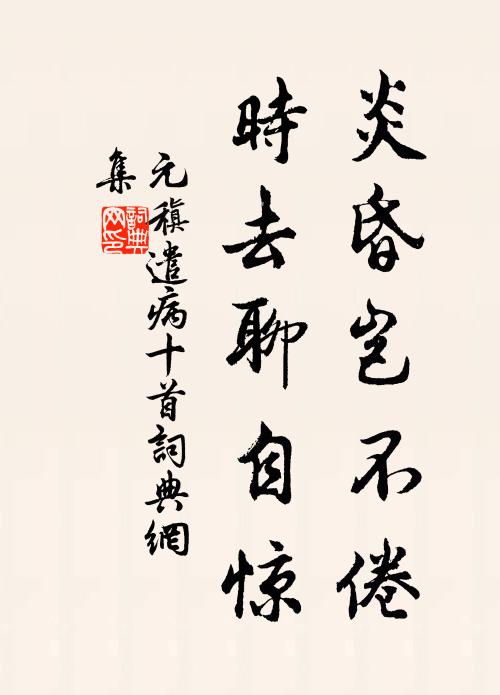 炎昏岂不倦
時去聊自惊
元稹遣病十首詞典網
集
詞典网印